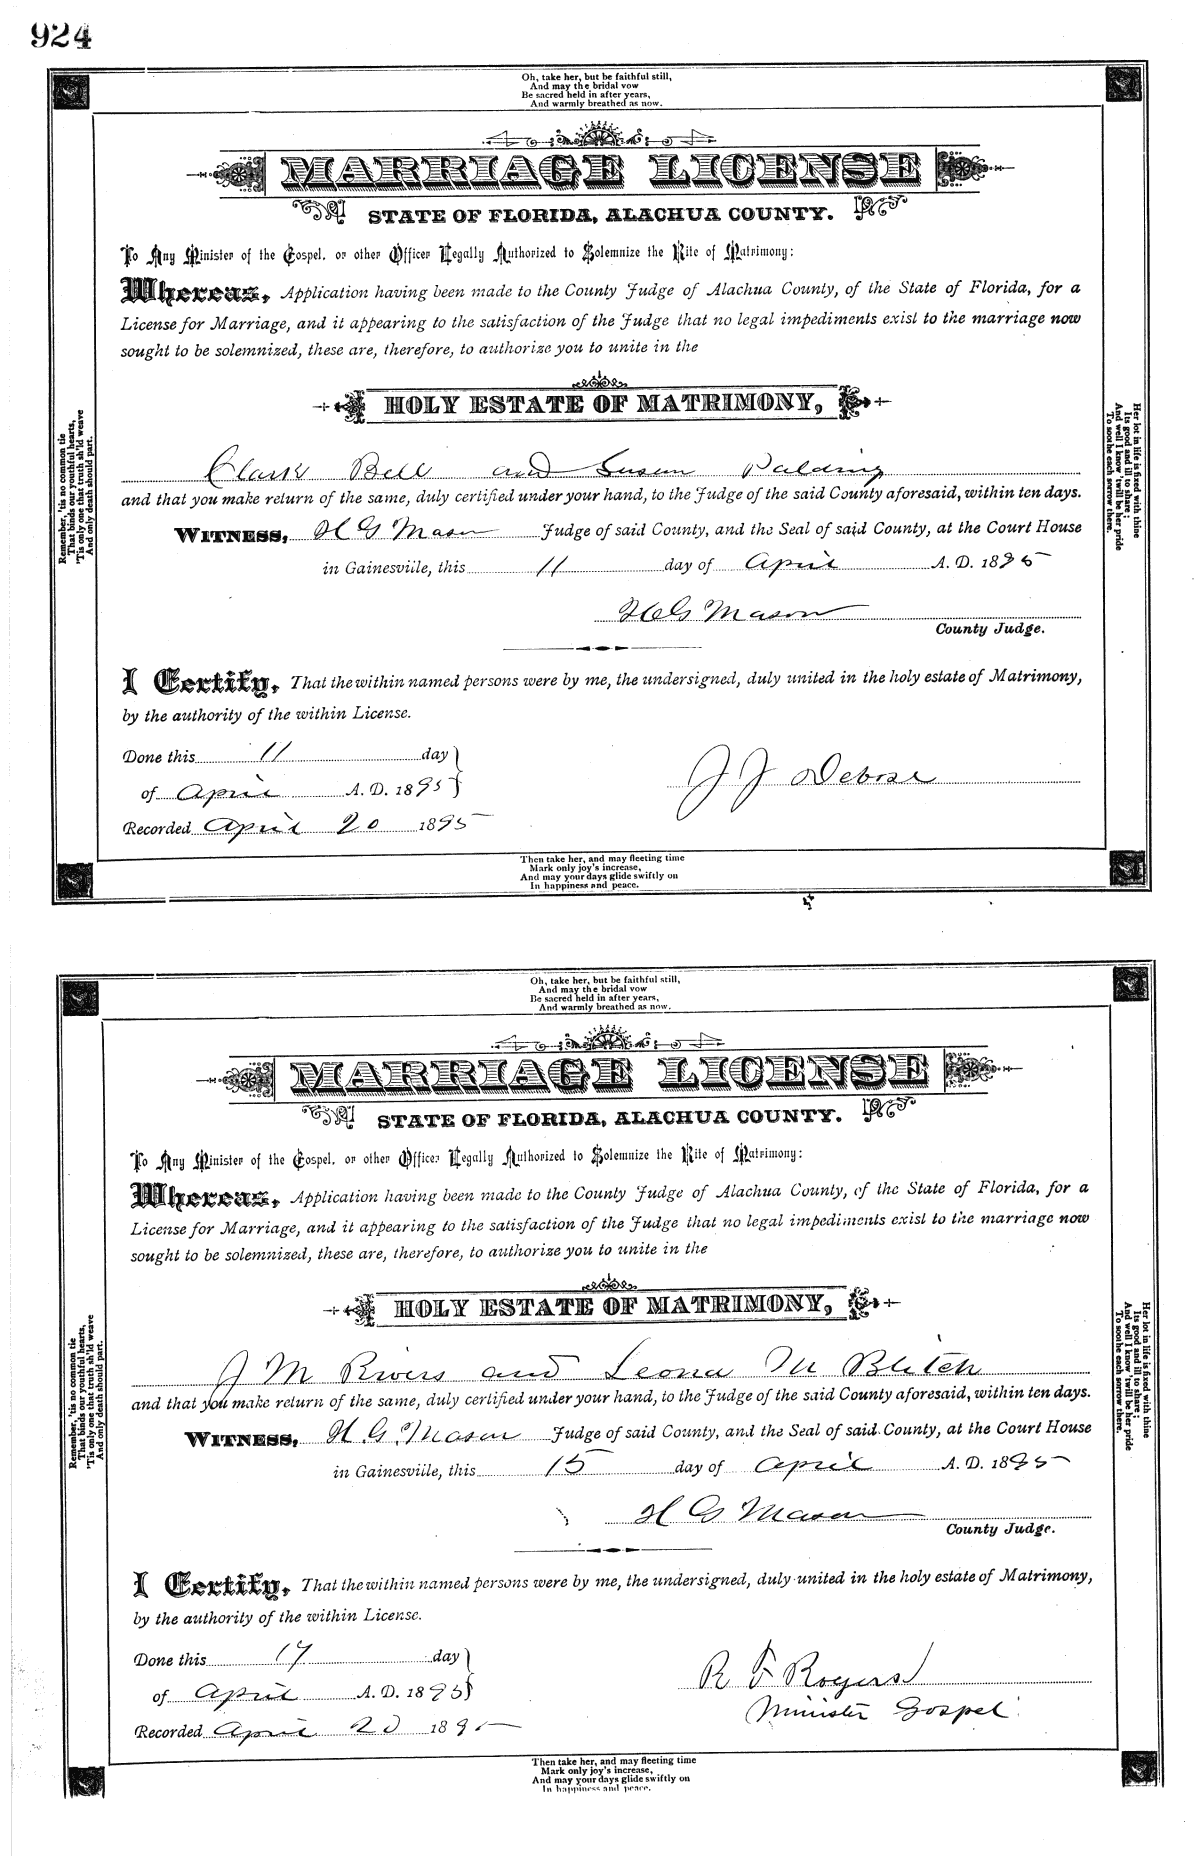 924
Oh, take her, but be faithful still,
And may the bridal vow
Be sacred held in after years,
And warmly breathed as now.
MARRIAGE LICENSE
STATE OF FLORIDA, ALACHUA COUNTY.
To Any Minister of the Gospel, or other Officer Legally Authorized to Solemnize the Rite of Matrimony:
Whereas, Application having been made to the County Judge of Alachua County, of the State of Florida, for a
License for Marriage, and it appearing to the satisfaction of the Judge that no legal impediments exist to the marriage now
sought to be solemnized, these are, therefore, to authorize you to unite in the
HOLY ESTATE OF MATRIMONY,
Clark Bell and Susan Palding
and that you make return of the same, duly certified under your hand, to the Judge of the said County aforesaid, within ten days.
WITNESS, H G Mason Judge of said County, and the Seal of said County, at the Court House
in Gainesville, this 11 day of April A. D. 1895
H G Mason
County Judge.
I Certify, That the within named persons were by me, the undersigned, duly united in the holy estate of Matrimony,
by the authority of the within License.
Done this 11 day
of April A. D. 1895
J J Debose
Recorded April 20 1895
Remember, 'tis no common tie
That binds our youthful hearts,
'Tis only one that truth sh'ld weave
And only death should part.
Her lot in life is fixed with thine
Its good and ill to share;
And well I know 'twill be her pride
To soothe each sorrow there.
Then take her, and may fleeting time
Mark only joy's increase,
And may your days glide swiftly on
In happiness and peace.
Oh, take her, but be faithful still,
And may the bridal vow
Be sacred held in after years,
And warmly breathed as now.
MARRIAGE LICENSE
STATE OF FLORIDA, ALACHUA COUNTY.
To Any Minister of the Gospel, or other Officer Legally Authorized to Solemnize the Rite of Matrimony:
Whereas, Application having been made to the County Judge of Alachua County, of the State of Florida, for a
License for Marriage, and it appearing to the satisfaction of the Judge that no legal impediments exist to the marriage now
sought to be solemnized, these are, therefore, to authorize you to unite in the
HOLY ESTATE OF MATRIMONY,
J M Rivers and Leona M Blitch
and that you make return of the same, duly certified under your hand, to the Judge of the said County aforesaid, within ten days.
WITNESS, H. G. Mason Judge of said County, and the Seal of said County, at the Court House
in Gainesville, this 15 day of April A. D. 1895
H G Mason
County Judge.
I Certify, That the within named persons were by me, the undersigned, duly united in the holy estate of Matrimony,
by the authority of the within License.
Done this 17 day
of April A. D. 1895
R F Rogers
Minister Gospel
Recorded April 20 1895
Remember, 'tis no common tie
That binds our youthful hearts,
'Tis only one that truth sh'ld weave
And only death should part.
Her lot in life is fixed with thine
Its good and ill to share;
And well I know 'twill be her pride
To soothe each sorrow there.
Then take her, and may fleeting time
Mark only joy's increase,
And may your days glide swiftly on
In happiness and peace.